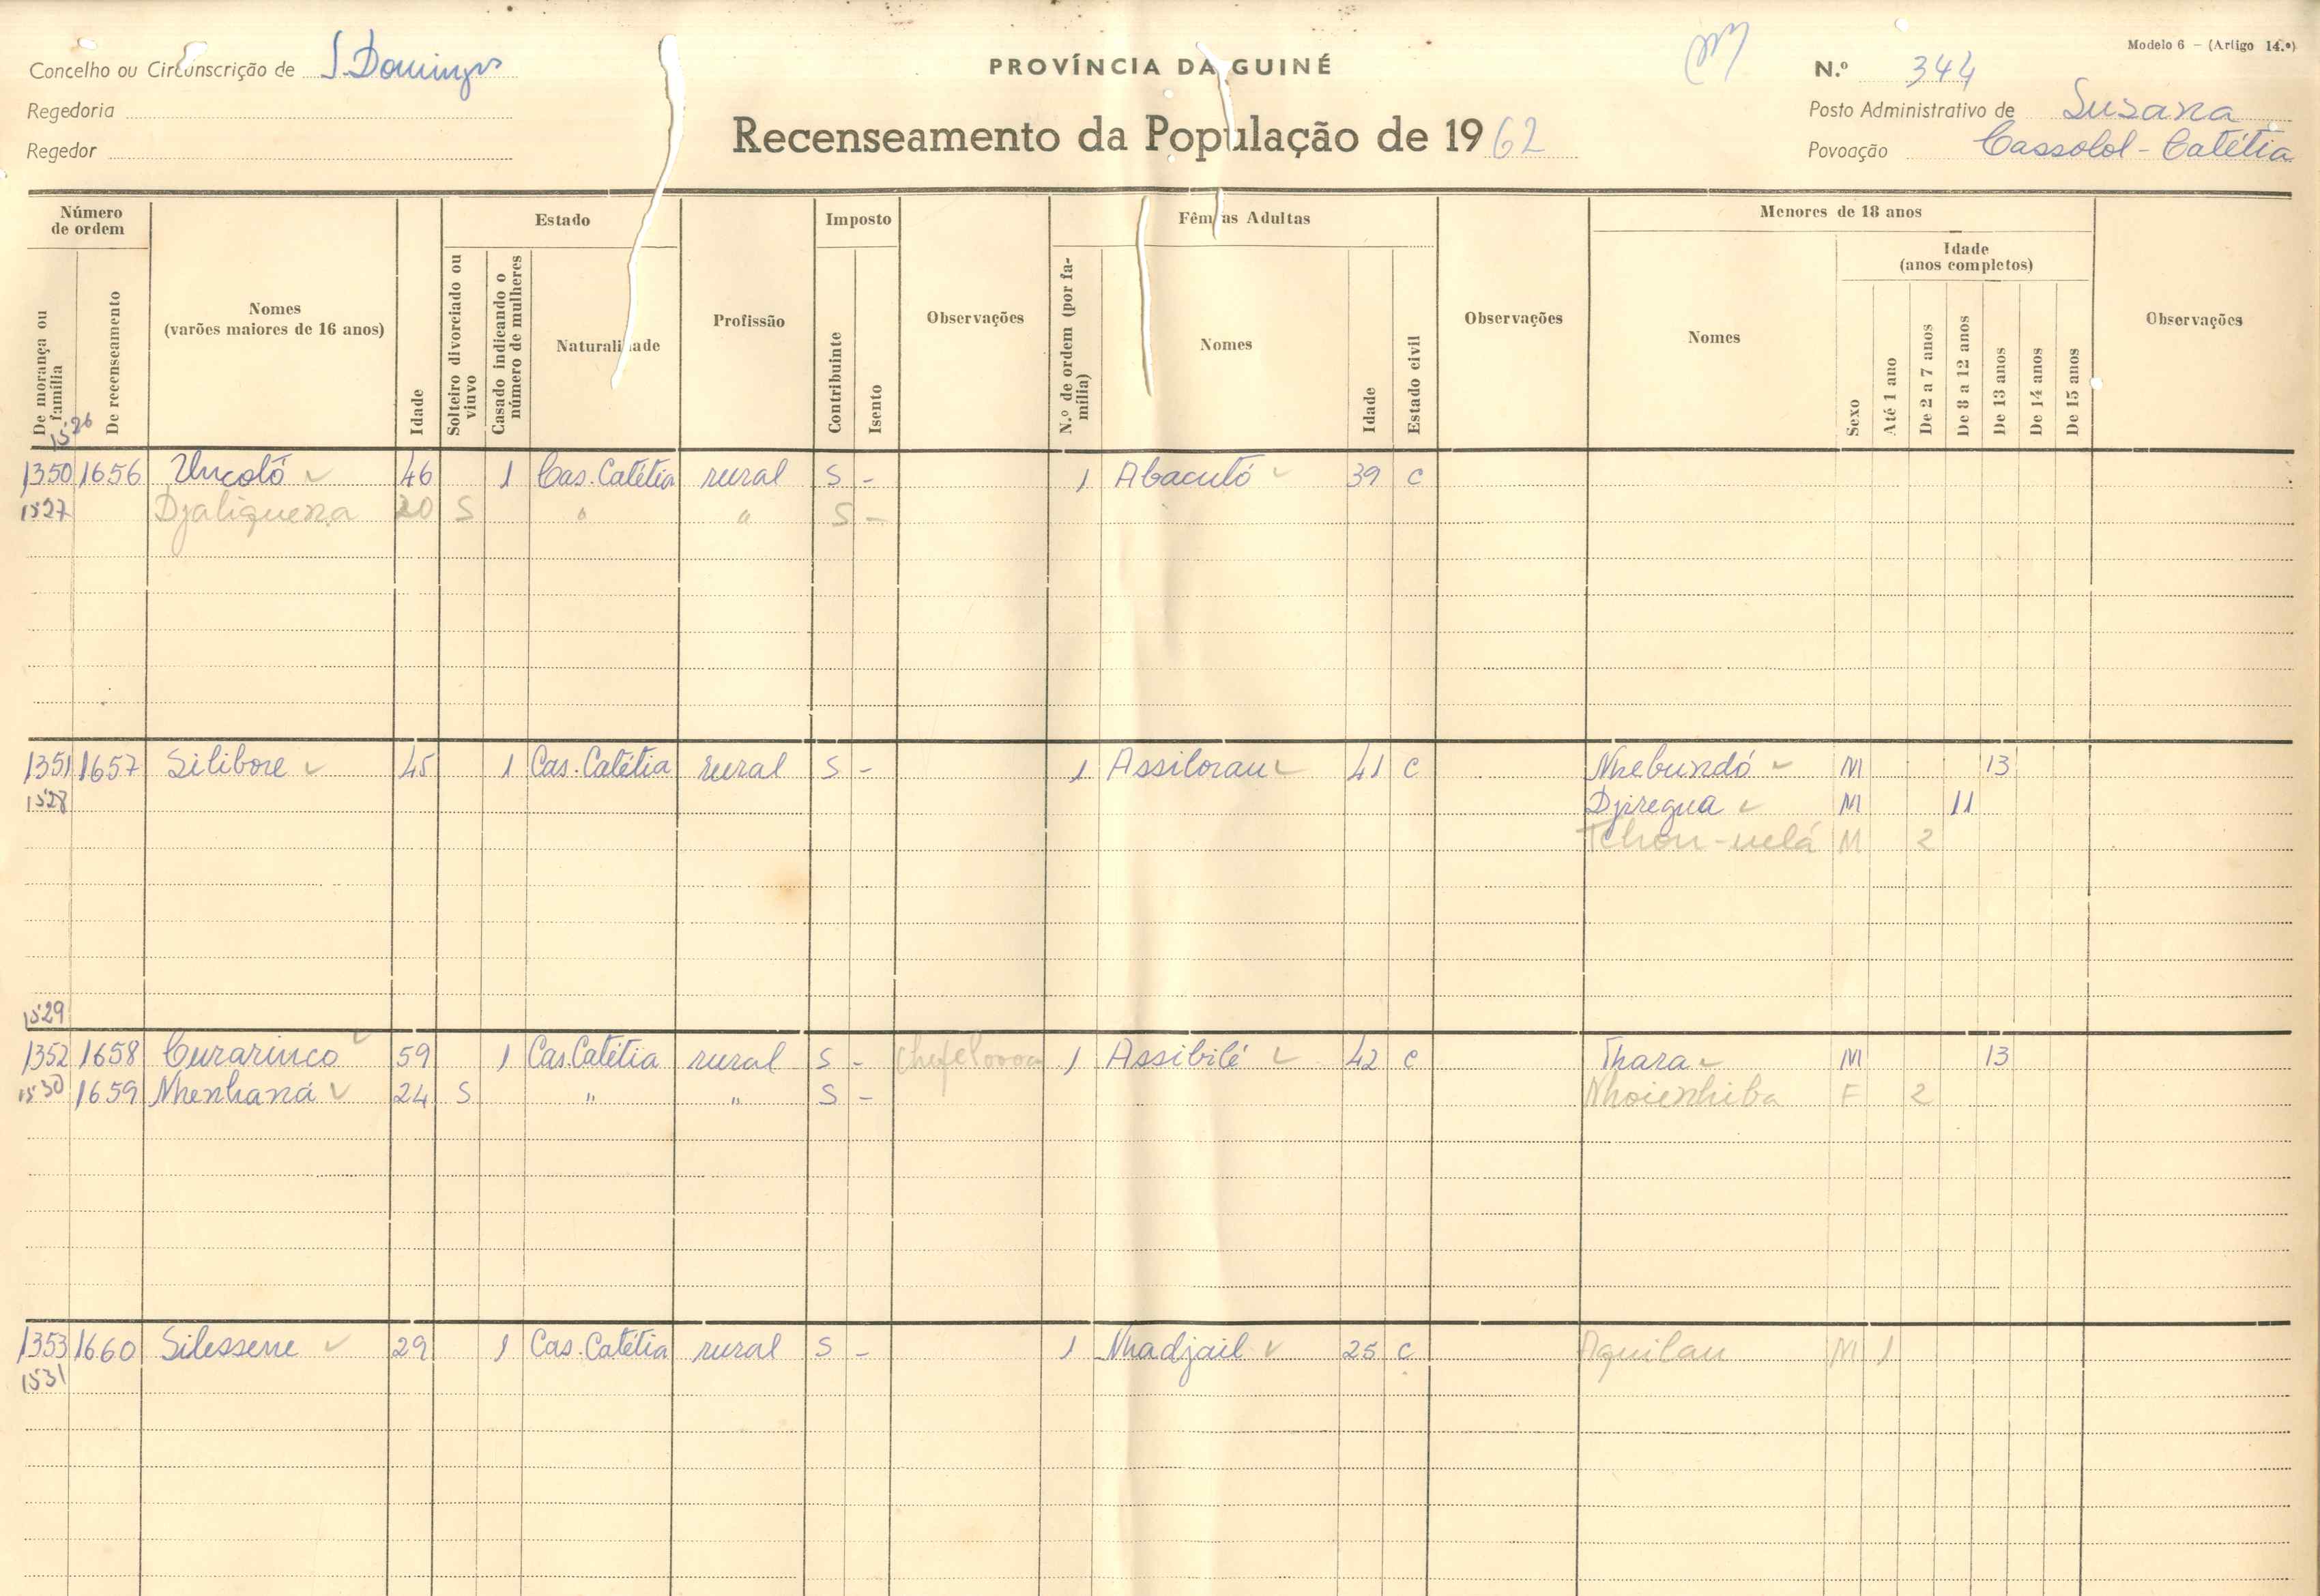 Modelo 6 – (Artigo 14.º)
Concelho ou Circunscrição de S. Domingos
PROVÍNCIA DA GUINÉ
N.º 344
Regedoria
Posto Administrativo de Susana
Recenseamento da População de 1962
Regedor
Povoação Cassolol - Catétia
Número de ordem
Estado
Imposto
Fêmeas Adultas
Menores de 18 anos
Idade (anos completos)
De morança ou família
De recenseamento
Nomes (varões maiores de 16 anos)
Idade
Solteiro divorciado ou viuvo
Casado indicando o número de mulheres
Naturalidade
Profissão
Contribuinte
Isento
Observações
N.º de ordem (por família)
Nomes
Idade
Estado civil
Observações
Nomes
Sexo
Até 1 ano
De 2 a 7 anos
De 8 a 12 anos
De 13 anos
De 14 anos
De 15 anos
Observações
1526
1350 1656 Uncoló 46 1 Cas. Catétia rural S - 1 Abacutó 39 C
1527 Djaliquena 20 S " " S -
1351 1657 Silibore 45 1 Cas. Catétia rural S - 1 Assilorau 41 C Nhebundó M 13
1528 Djiregua M 11
Tchou-uelá M 2
1529
1352 1658 Curarinco 59 1 Cas. Catétia rural S - 1 Assibilé 42 C Thara M 13
1530 1659 Nhenhaná 24 S " " S - Nhoienhiba F 2
1353 1660 Silessene 29 1 Cas. Catétia rural S - 1 Nhadjail 25 C Aquilau M 1
1531